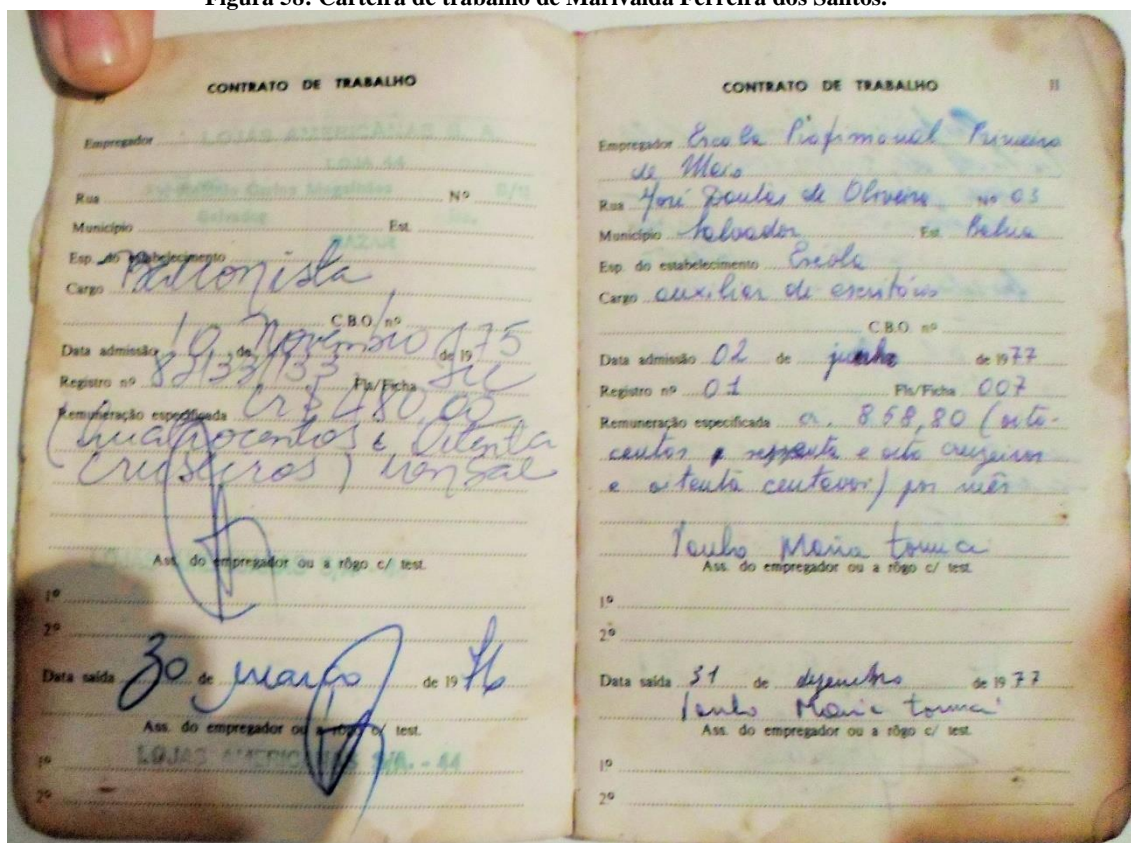 Figura 38: Carteira de trabalho de Marivalda Ferreira dos Santos.
CONTRATO DE TRABALHO
Empregador LOJAS AMERICANAS S.A.
LOJA 44
Rua Antonio Carlos Magalhães Nº S/N
Município Salvador Est. Ba.
Esp. do estabelecimento BAZAR
Cargo Balconista
C.B.O. nº
Data admissão 10 de Novembro de 1975
Registro nº Fls/Ficha
Remuneração especificada Cr$ 480,00
(Quatrocentos e Oitenta
cruzeiros) mensal
Ass. do empregador ou a rôgo c/ test.
1º
2º
Data saída 30 de março de 1976
Ass. do empregador ou a rôgo c/ test.
LOJAS AMERICANAS S/A. - 44
1º
2º
CONTRATO DE TRABALHO 11
Empregador Escola Profissional Primeiro
de Maio
Rua José Doutor de Oliveira Nº 03
Município Salvador Est. Bahia
Esp. do estabelecimento Escola
Cargo auxiliar de escritório
C.B.O. nº
Data admissão 02 de de 1977
Registro nº 01 Fls/Ficha 007
Remuneração especificada cr. 858,80 (oito-
centos e e oito cruzeiros
e oitenta centavos) por mês
Maria
Ass. do empregador ou a rôgo c/ test.
1º
2º
Data saída 31 de dezembro de 1977
Maria
Ass. do empregador ou a rôgo c/ test.
1º
2º